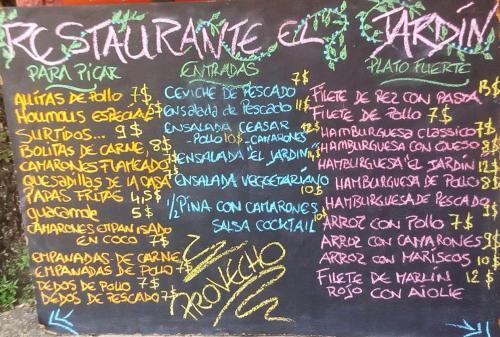 RESTAURANTE EL JARDÍN
PARA PICAR
ALITAS DE POLLO 7$
HOUMOUS ESPECIAL
SURTIDOS... 9$
BOLITAS DE CARNE 8$
CAMARONES FLAMEADO
QUESADILLAS DE LA CASA
PAPAS FRITAS 4,5$
GUACAMOLE 5$
CAMARONES EMPANISADO
EN COCO 7$
EMPANADAS DE CARNE
EMPANADAS DE POLLO 7$
DEDOS DE POLLO 7$
DEDOS DE PESCADO 7$
ENTRADAS
CEVICHE DE PESCADO 7$
ENSALADA DE PESCADO
ENSALADA CEASAR
-POLLO 10$ -CAMARONES
ENSALADA "EL JARDIN"
ENSALADA VEGGETARIANO
10$
1/2 PINA CON CAMARONES
SALSA COCKTAIL 10$
PROVECHO
PLATO FUERTE
FILETE DE REZ CON PASTA 13$
FILETE DE POLLO 7$
HAMBURGUESA CLASSICO 7$
HAMBURGUESA CON QUESO 8$
HAMBURGUESA "EL JARDIN" 12$
HAMBURGUESA DE POLLO 8$
HAMBURGUESA DE PESCADO 9$
ARROZ CON POLLO 7$
ARROZ CON CAMARONES 9$
ARROZ CON MARISCOS 10$
FILETE DE MARLIN 12$
ROJO CON AIOLIE